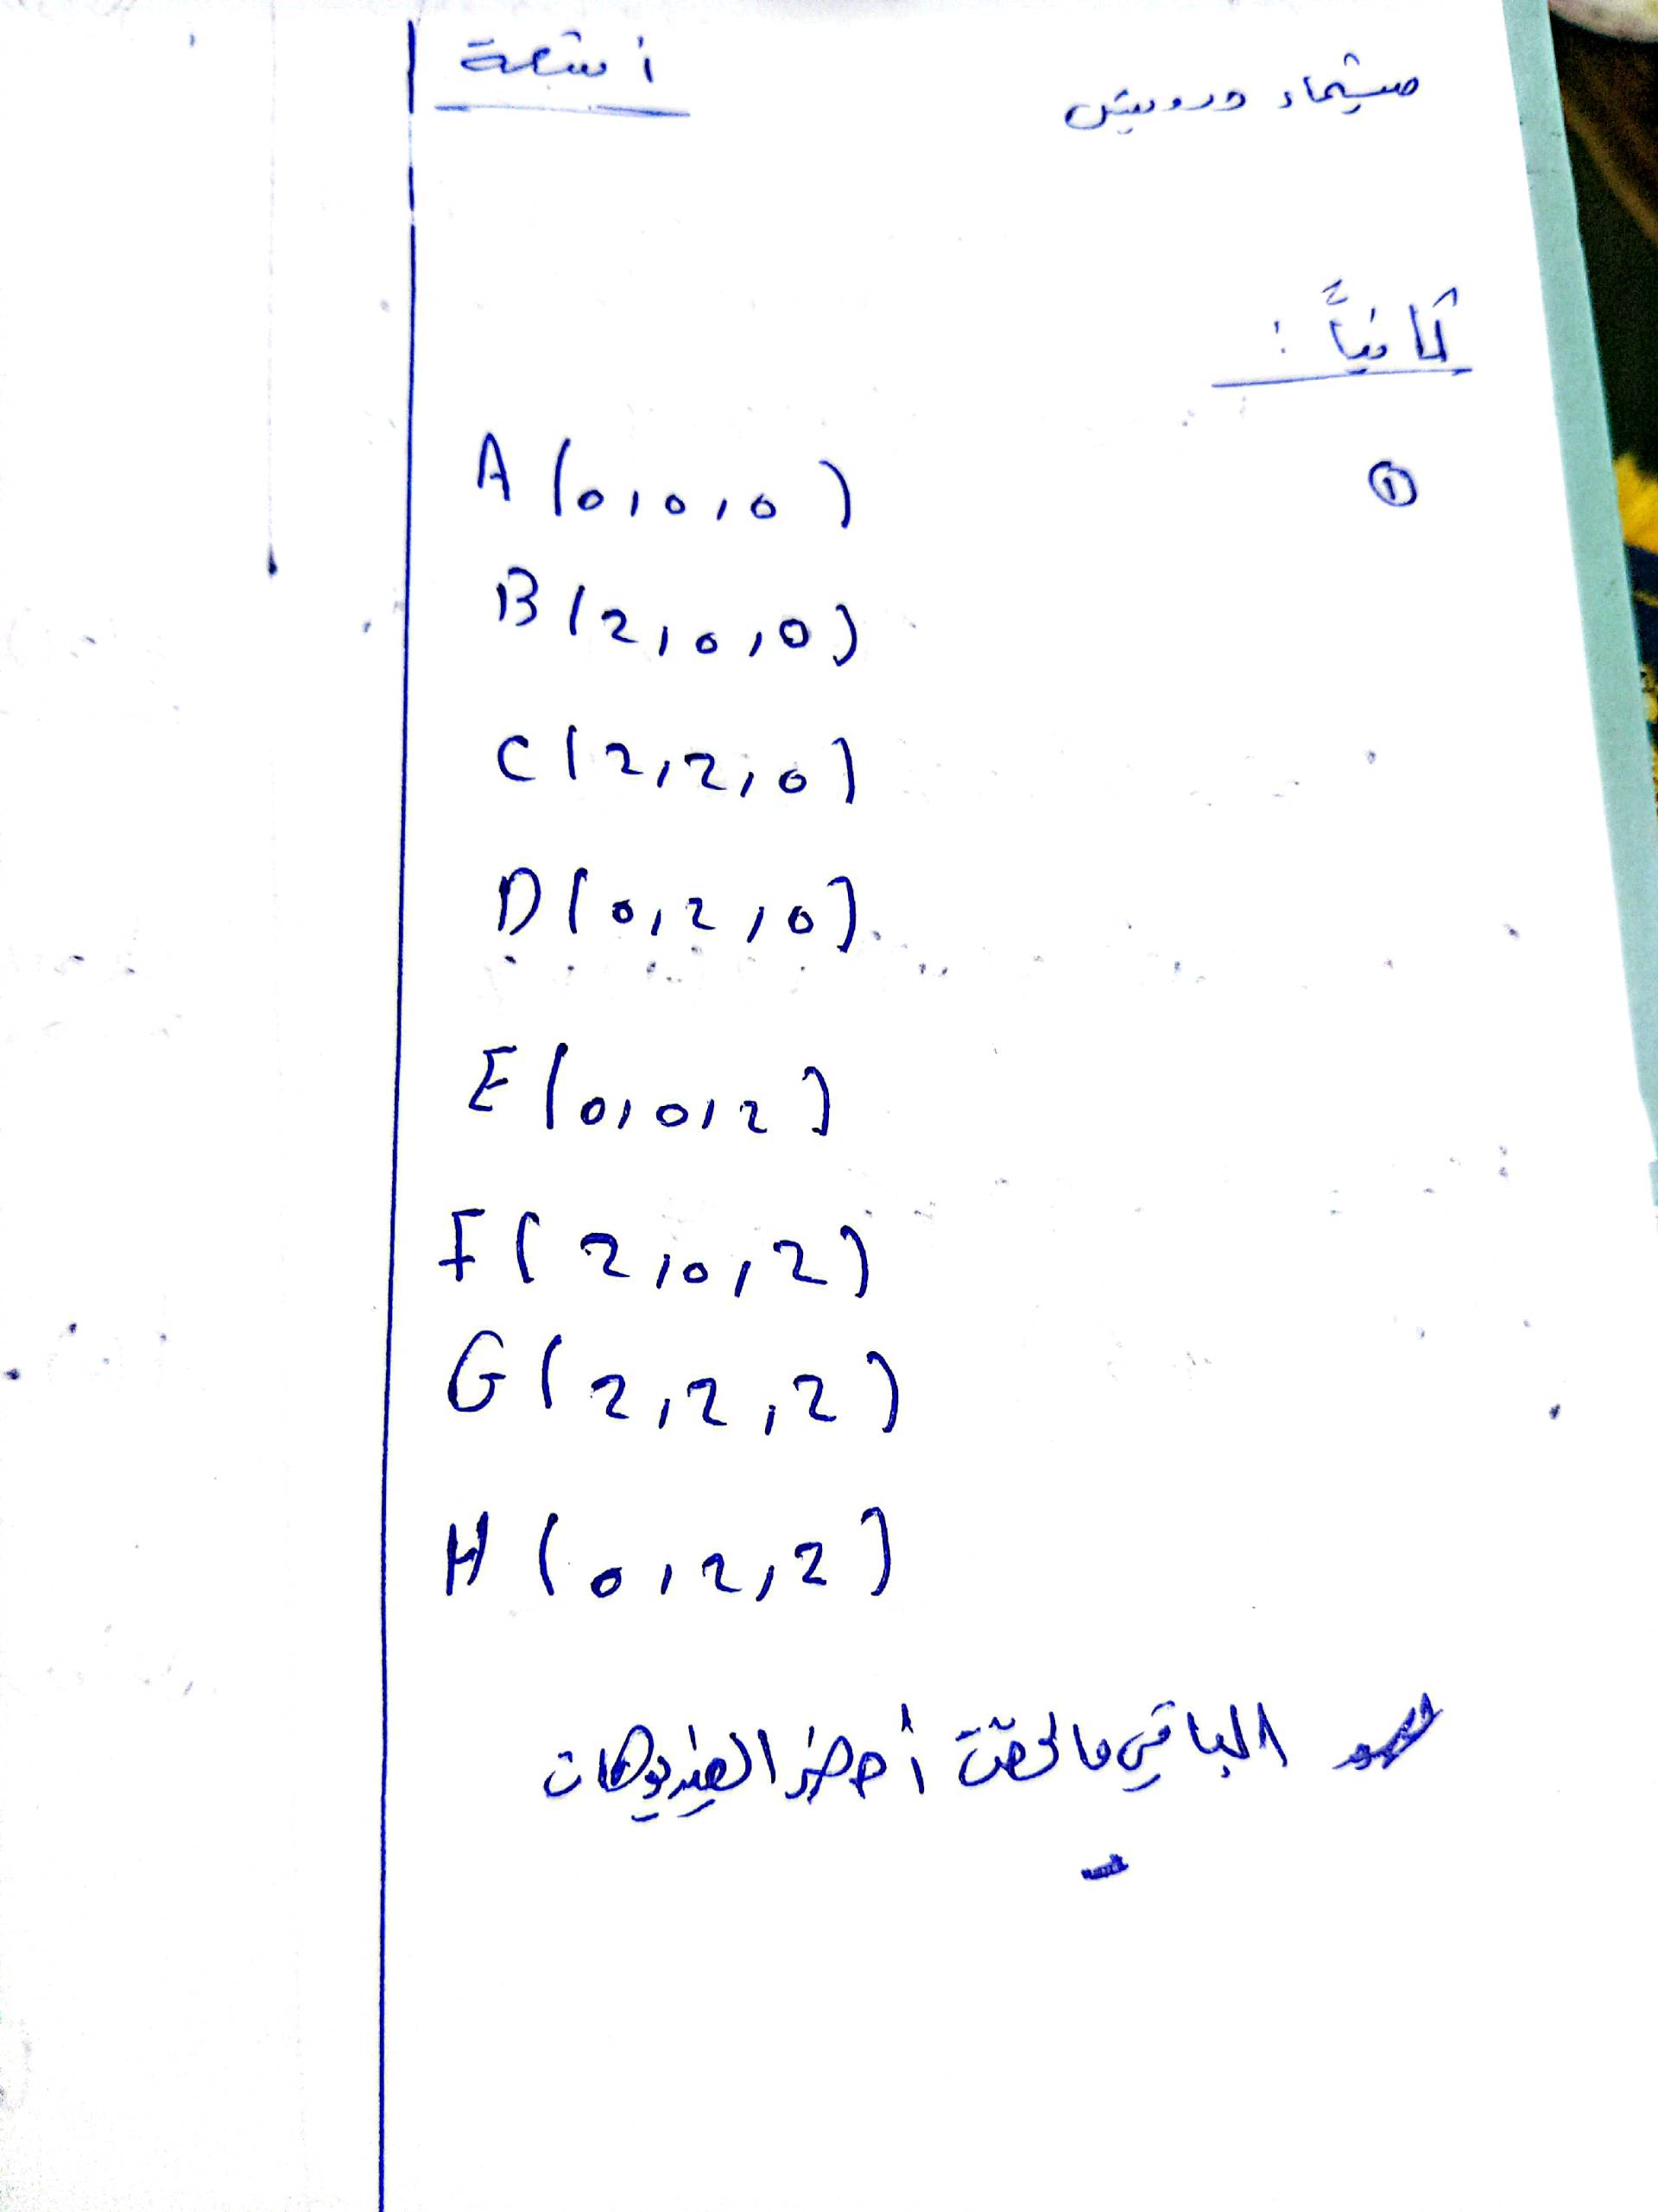 شيماء درويش
أشعة
ثانياً :
①
A (0,0,0)
B (2,0,0)
C (2,2,0)
D (0,2,0)
E (0,0,2)
F (2,0,2)
G (2,2,2)
H (0,2,2)
الباقي مالحقت أحضر الفيديوهات